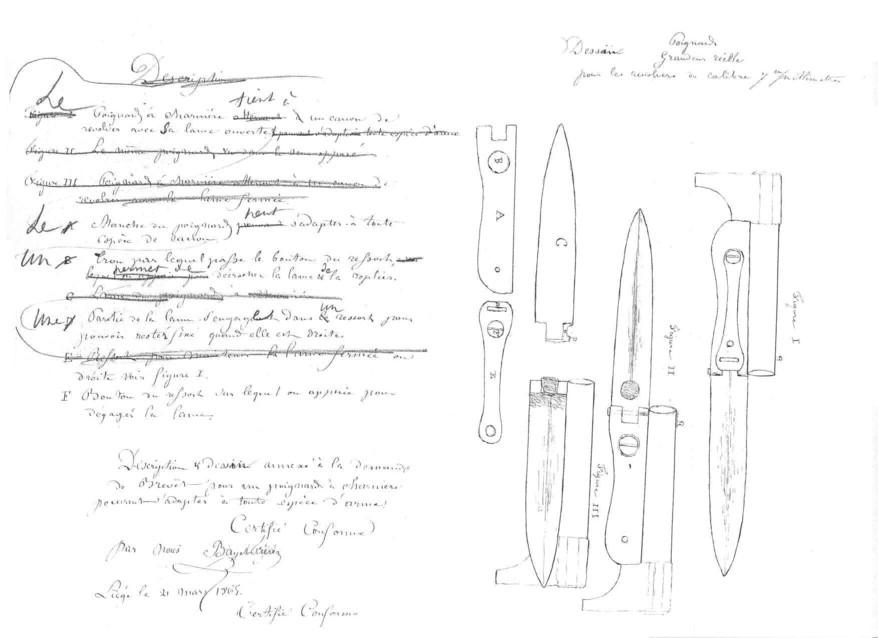 Description
Le
Figure I Poignard à charnière tient à un canon de
revolver avec sa lame ouverte, pouvant s'adapter à toute espèce d'arme
Figure II Le même poignard vu dans le sens opposé
Figure III Poignard à charnière à un canon de
revolver la lame fermée.
Le A Manche du poignard peut s'adapter à toute
espèce de
Un B Trou par lequel passe le bouton du ressort
permet de décrocher la lame de la
C Lame du poignard à charnière
Une D Partie de la lame s'engageant dans un ressort pour
pouvoir rester fixé quand elle est droite.
E Ressort pour la lame fermée ou
droite voir figure I.
F Bouton du ressort sur lequel on appuie pour
dégager la lame.
Description & dessin annexé à la demande
de Brevet pour un poignard à charnière
pouvant s'adapter à toute espèce d'arme
Certifié Conforme
par nous
Liège le 21 mars 1865.
Certifié Conforme
Dessin Poignard
Grandeur réelle
pour les revolvers du calibre 7 millimètres
B
A
C
D
F
E
Figure I
Figure II
Figure III